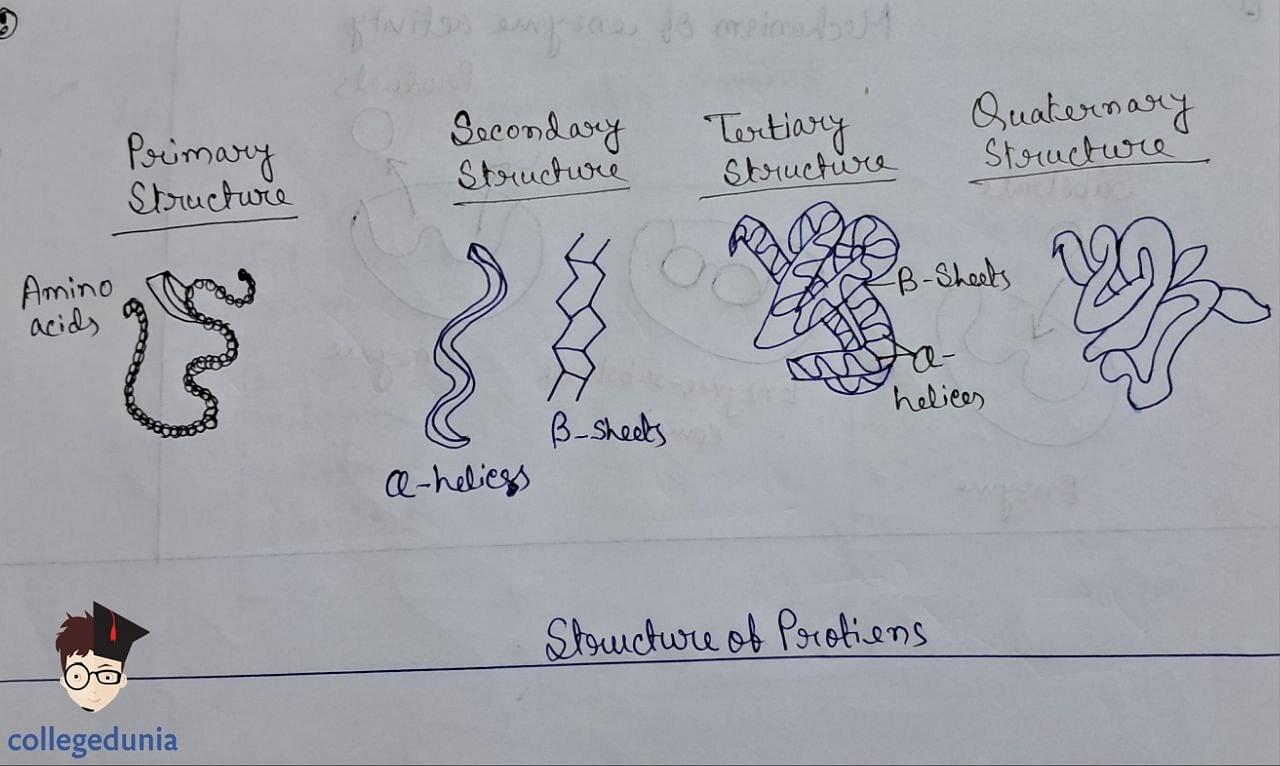 Primary
Structure
Amino
acids
Secondary
Structure
α-helices
β-sheets
Tertiary
Structure
β-Sheets
α-
helices
Quaternary
Structure
Structure of Protiens
collegedunia